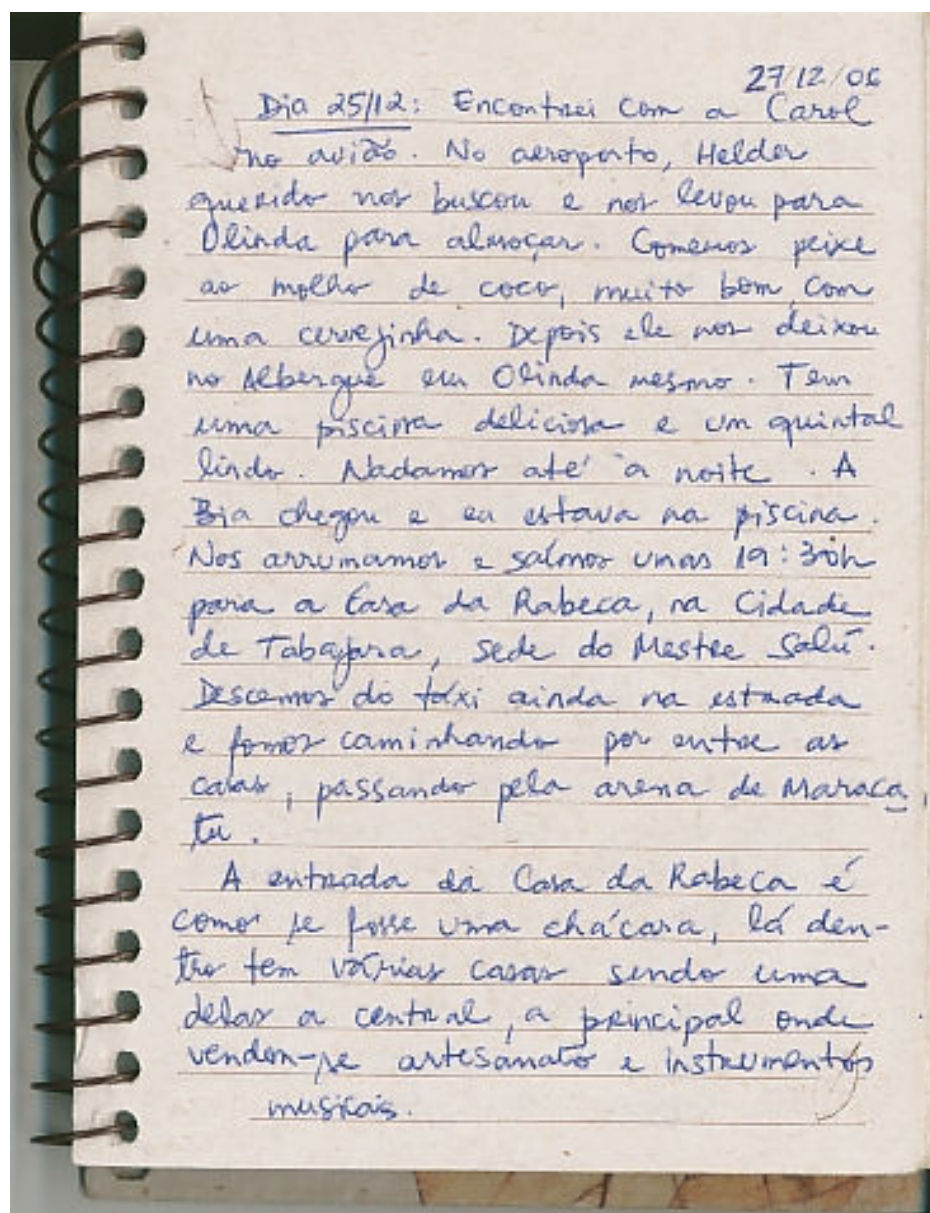 27/12/06
Dia 25/12: Encontrei com a Carol
no avião. No aeroporto, Helder
querido nos buscou e nos levou para
Olinda para almoçar. Comemos peixe
ao molho de coco, muito bom, com
uma cervejinha. Depois ele nos deixou
no Albergue em Olinda mesmo. Tem
uma piscina deliciosa e um quintal
lindo. Nadamos até à noite. A
Bia chegou e eu estava na piscina.
Nos arrumamos e saímos umas 19:30h
para a Casa da Rabeca, na Cidade
de Tabajara, sede do Mestre Salú.
Descemos do táxi ainda na estrada
e fomos caminhando por entre as
casas, passando pela arena de Maraca
tu.
A entrada da Casa da Rabeca é
como se fosse uma chácara, lá den-
tro tem várias casas sendo uma
delas a central, a principal onde
vendem-se artesanato e instrumentos
musicais.